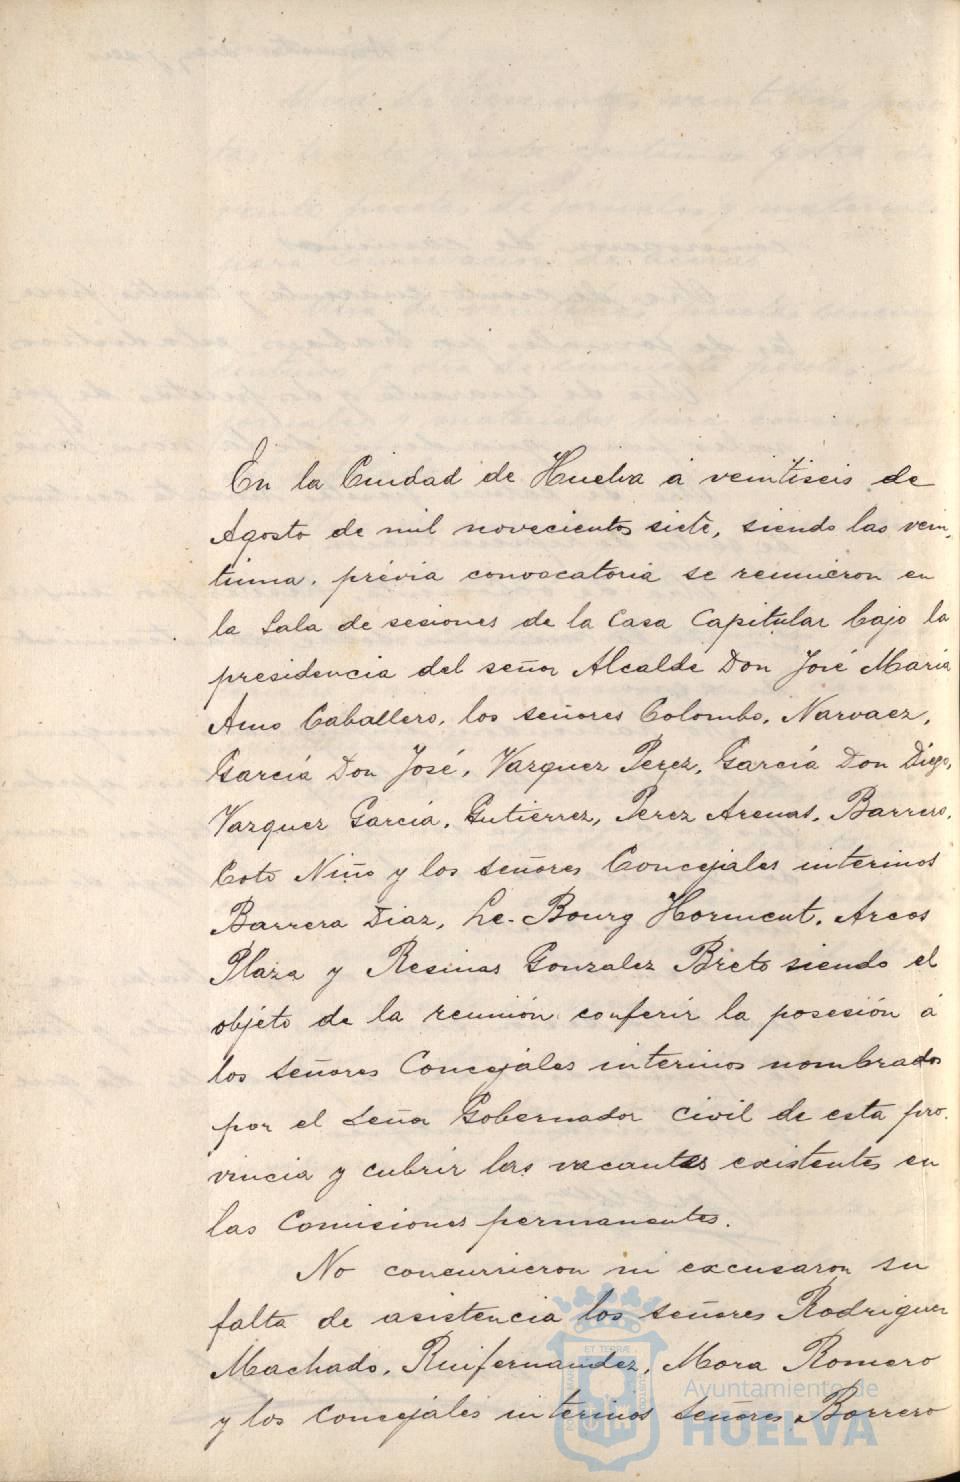 En la Ciudad de Huelva á veintiseis de
Agosto de mil novecientos siete, siendo las vein-
tiuna, prévia convocatoria se reunieron en
la Sala de sesiones de la Casa Capitular bajo la
presidencia del señor Alcalde Don José Maria
Amo Caballero, los señores Colombo, Narvaez,
García Don José, Vazquez Perez, García Don Diego,
Vazquez García, Gutierrez, Perez Arenas, Barrero,
Coto Niño y los señores Concejales interinos
Barrera Diaz, Le-Bourg Horment, Arcos
Plaza y Resinas Gonzalez Brieto siendo el
objéto de la reunión conferir la posesión á
los señores Concejáles interinos nombrados
por el Señor Gobernador civil de esta pro-
vincia y cubrir las vacantes existentes en
las Comisiones permanentes.
No concurrieron ni excusaron su
falta de asistencia los señores Rodriguez
Machado, Ruifernandez, Mora Romero
y los concejales interinos señores Borrero
ET TERRÆ
Ayuntamiento de
HUELVA